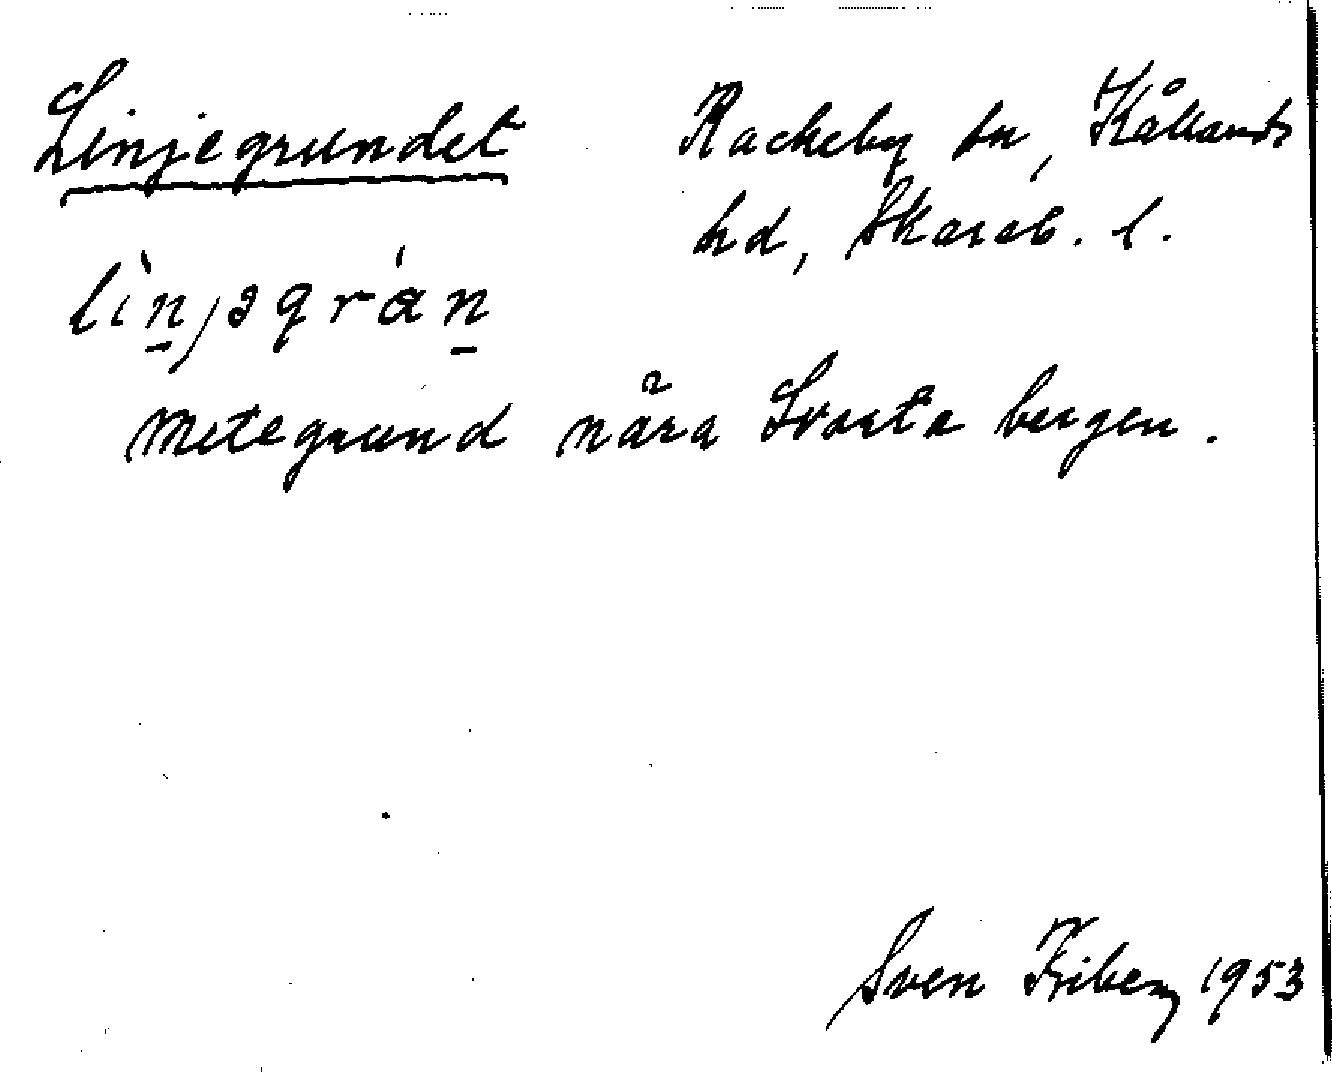 Linjegrundet
Rackeby sn, Kållands
hd, Skarab. l.
lìnjəgrán
Metegrund nära Svarta bergen.
Sven Friberg 1953